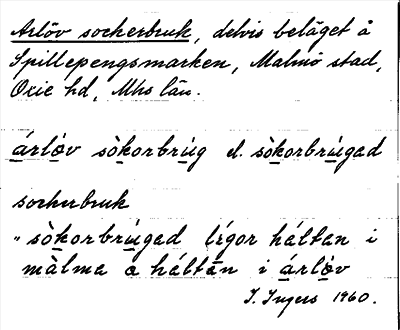 Arlöv sockerbruk, delvis beläget å
Spillepengsmarken, Malmö stad,
Oxie hd, Mhs län.
árlòv sòkorbrúg el. sòkorbrúgad
sockerbruk
" sòkorbrúgad lígor háltan i
màlma o háltan i árlòv
I. Ingers 1960.